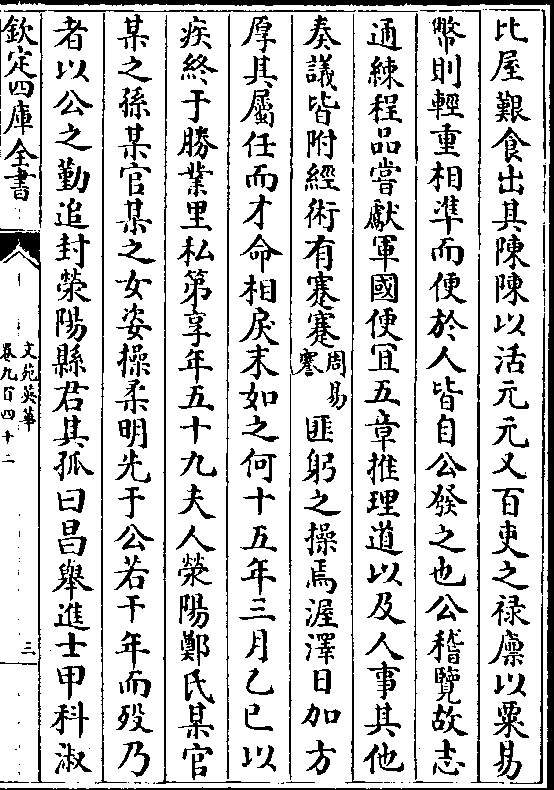 比屋艱食出其陳陳以活元元又百吏之祿廩以粟易
幣則輕重相準而便於人皆自公發之也公稽覽故志
通練程品嘗獻軍國便宜五章推理道以及人事其他
奏議皆附經術有蹇蹇周易蹇匪躬之操焉渥澤日加方
厚其屬任而才命相戾末如之何十五年三月乙已以
疾終于勝業里私第享年五十九夫人滎陽鄭氏某官
某之孫某官某之女姿操柔明先于公若干年而歿乃
者以公之勤追封滎陽縣君其孤曰昌舉進士甲科淑
欽定四庫全書
文苑英華
卷九百四十二
三